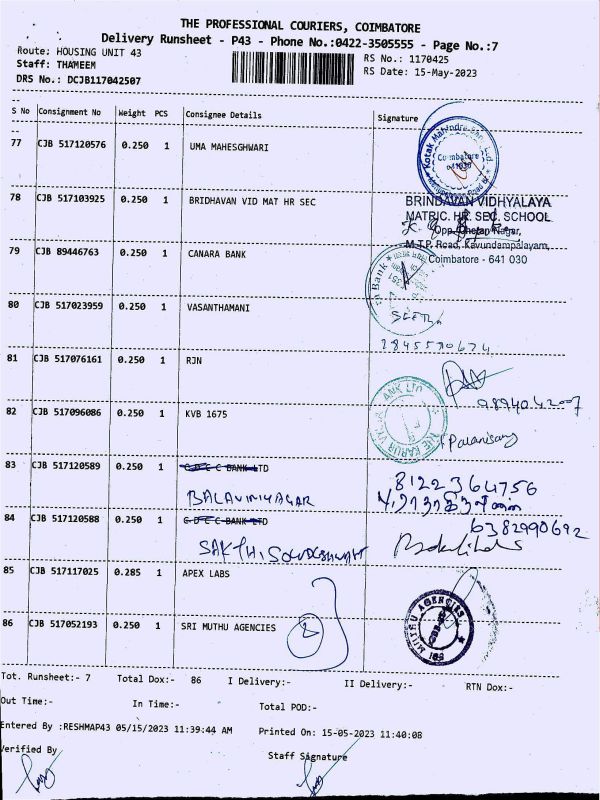 THE PROFESSIONAL COURIERS, COIMBATORE
Delivery Runsheet - P43 - Phone No.:0422-3505555 - Page No.:7
Route: HOUSING UNIT 43
RS No.: 1170425
Staff: THAMEEM
RS Date: 15-May-2023
DRS No.: DCJB117042507
S No Consignment No Weight PCS Consignee Details Signature
77 CJB 517120576 0.250 1 UMA MAHESGHWARI
Kotak Mahindra Coimbatore
78 CJB 517103925 0.250 1 BRIDHAVAN VID MAT HR SEC
BRINDAVAN VIDHYALAYA
MATRIC. HR. SEC. SCHOOL
Opp. Chetan Nagar,
M.T.P. Road, Kavundampalayam,
Coimbatore - 641 030
79 CJB 89446763 0.250 1 CANARA BANK
Bank
80 CJB 517023959 0.250 1 VASANTHAMANI
81 CJB 517076161 0.250 1 RJN
82 CJB 517096086 0.250 1 KVB 1675
THE KARUR BANK LTD
83 CJB 517120589 0.250 1 C D C C BANK LTD
BALAVINIYAGAR
8122364756
84 CJB 517120588 0.250 1 C D C C BANK LTD
6382990692
85 CJB 517117025 0.285 1 APEX LABS
86 CJB 517052193 0.250 1 SRI MUTHU AGENCIES
SRI MUTHU AGENCIES
Tot. Runsheet:- 7 Total Dox:- 86 I Delivery:- II Delivery:- RTN Dox:-
Out Time:- In Time:- Total POD:-
Entered By :RESHMAP43 05/15/2023 11:39:44 AM Printed On: 15-05-2023 11:40:08
Verified By Staff Signature